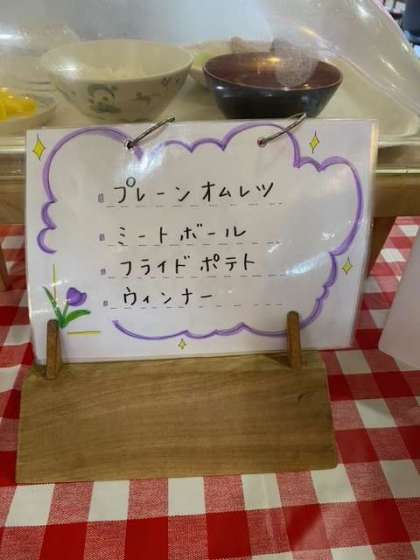 プレーンオムレツ
ミートボール
フライドポテト
ウィンナー